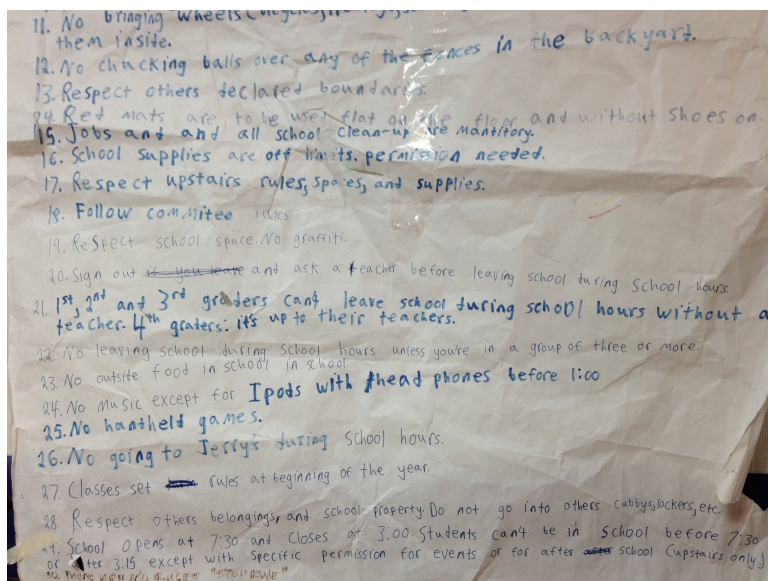 11. No bringing wheels
them inside.
12. No chucking balls over any of the fences in the backyard.
13. Respect others declared boundaries.
14. Red mats are to be used flat on the floor and without shoes on.
15. Jobs and and all school clean-up are mantitory.
16. School supplies are off limits. permission needed.
17. Respect upstairs rules, spaces, and supplies.
18. Follow commitee rules
19. Respect school space. No graffiti.
20. Sign out if you leave and ask a teacher before leaving school during school hours.
21. 1st, 2nd and 3rd graders can't leave school during school hours without a
teacher. 4th graters: it's up to their teachers.
22. No leaving school during school hours unless you're in a group of three or more.
23. No outside food in school in school.
24. No music except for Ipods with head phones before 1:00
25. No hantheld games.
26. No going to Jerry's during school hours.
27. Classes set rules at beginning of the year.
28. Respect others belongings, and school property. Do not go into others cubbys, lockers, etc.
29. School opens at 7:30 and closes at 3:00. Students can't be in school before 7:30
or after 3:15 except with specific permission for events or for after after school (upstairs only)